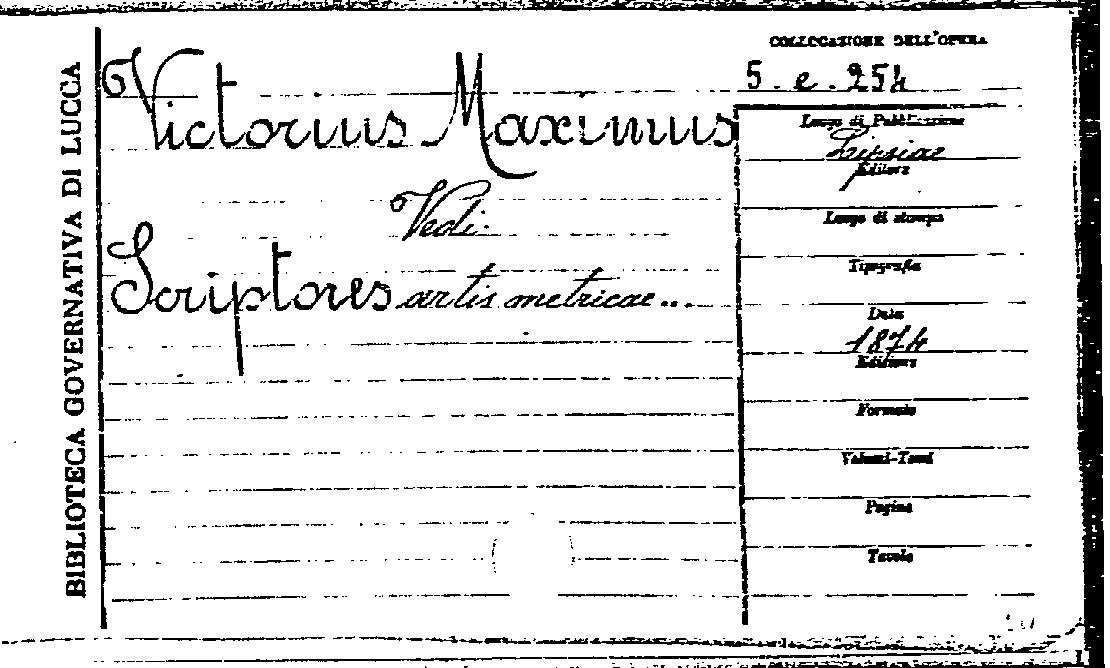 BIBLIOTECA GOVERNATIVA DI LUCCA
Victorius Maximus
Vedi:
Scriptores artis metricae...
COLLOCAZIONE DELL'OPERA
5. e. 254
Luogo di Pubblicazione
Lipsiae
Editore
Luogo di stampa
Tipografia
Data
1874
Edizione
Formato
Volumi-Tomi
Pagine
Tavole